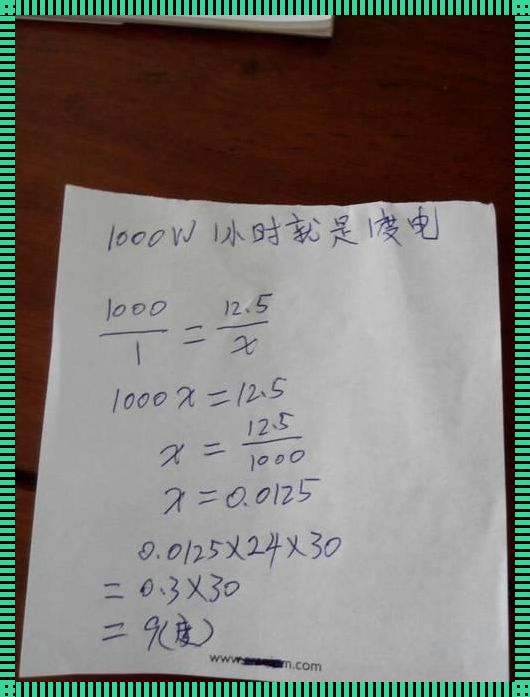 1000W 1小时就是1度电
1000/1 = 12.5/x
1000x=12.5
x = 12.5/1000
x=0.0125
0.0125×24×30
=0.3×30
=9(度)
www. m.com